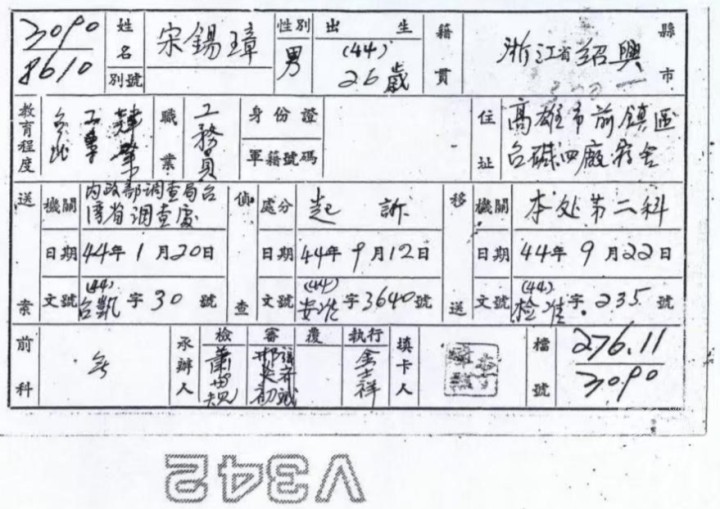 3090
8610
姓名
宋錫璋
別號
性別
男
出生
(44)
26歲
籍貫
浙江省紹興
縣市
教育程度
台北工專畢業
職業
工務員
身份證
軍籍號碼
住址
高雄市前鎮區
台碱四廠宿舍
送案
機關
內政部调查局台
灣省调查處
日期
44年1月20日
文號
(44)
台凱字30號
偵查
處分
起訴
日期
44年9月12日
文號
(44)
安准字3640號
移送
機關
本处第二科
日期
44年9月22日
文號
(44)
检准字235號
前科
承辦人
檢
審
覆
執行
填卡人
檔號
276.11
3090
V342